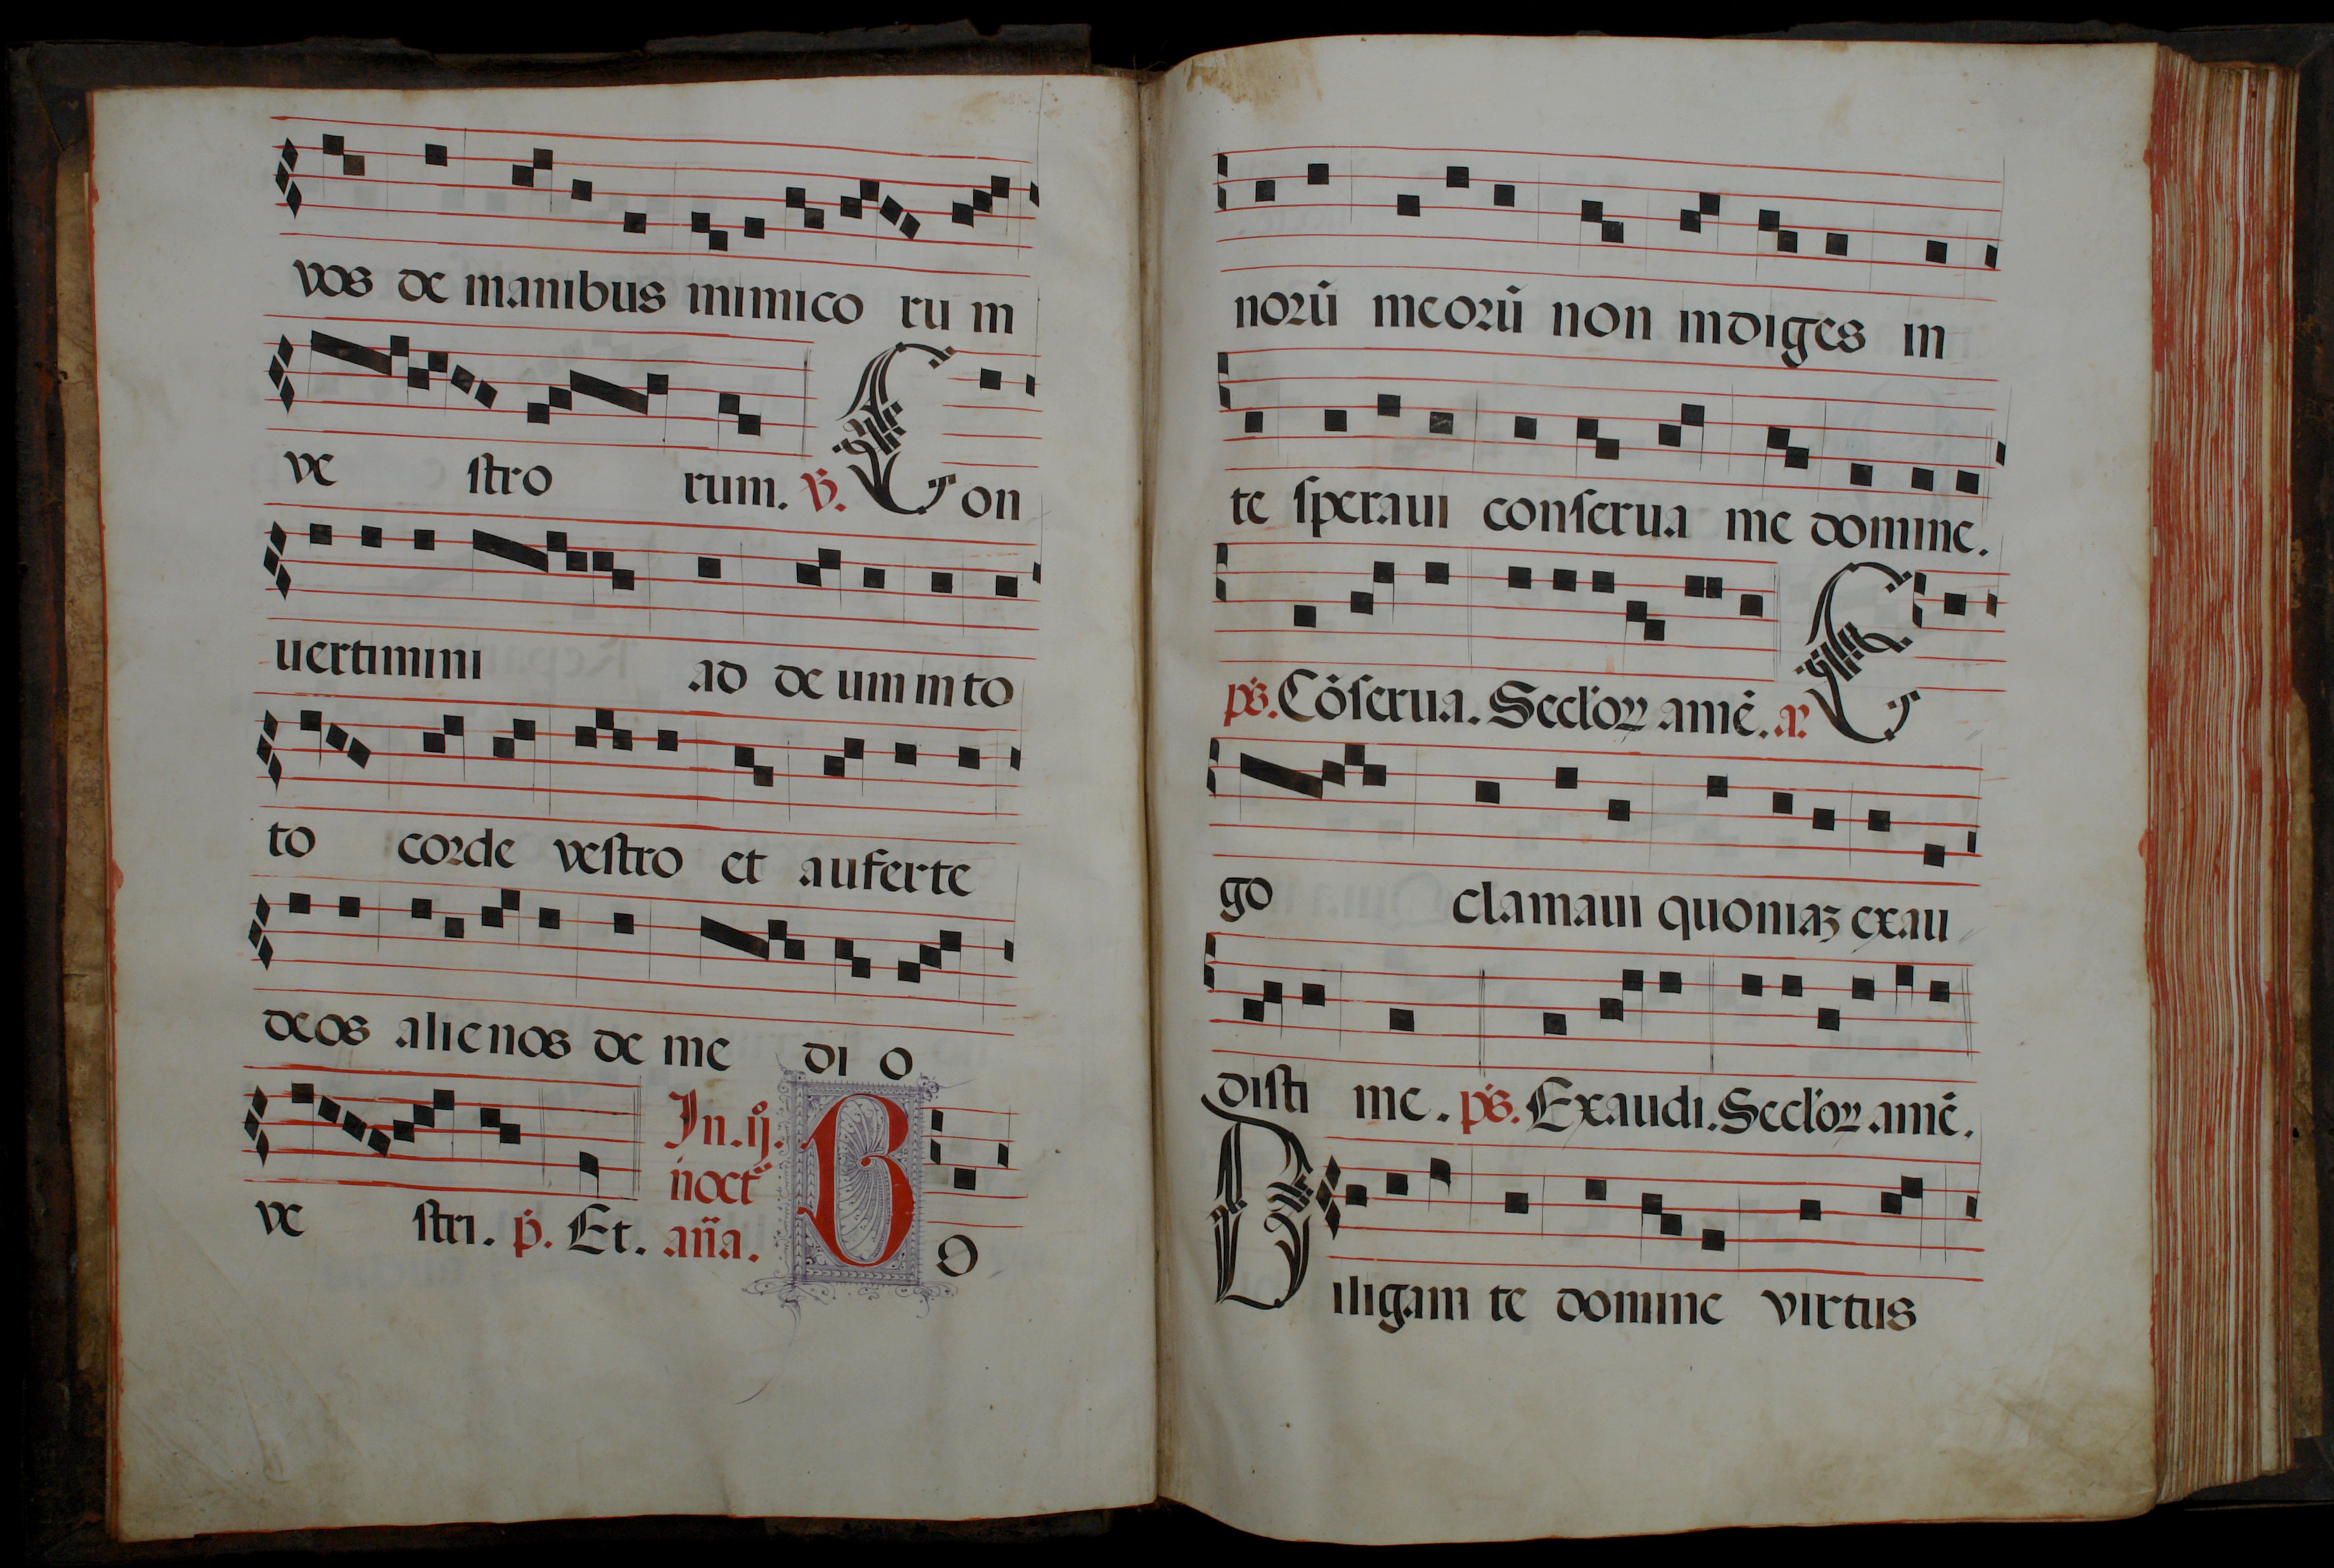 vos de manibus inimico ru m
ve stro rum. ℣. Con
uertimini ad deum in to
to corde vestro et auferte
deos alienos de me di o
ve stri. p̃. Et. In.ij. noct̃ aña. Bo
norũ meorũ non indiges in
te speraui conserua me domine.
ps. Cõserua. Secl'oꝝ amẽ. a. E
go clamaui quoniaꝫ exau
disti me. ps. Exaudi. Secl'oꝝ amẽ.
Diligam te domine virtus